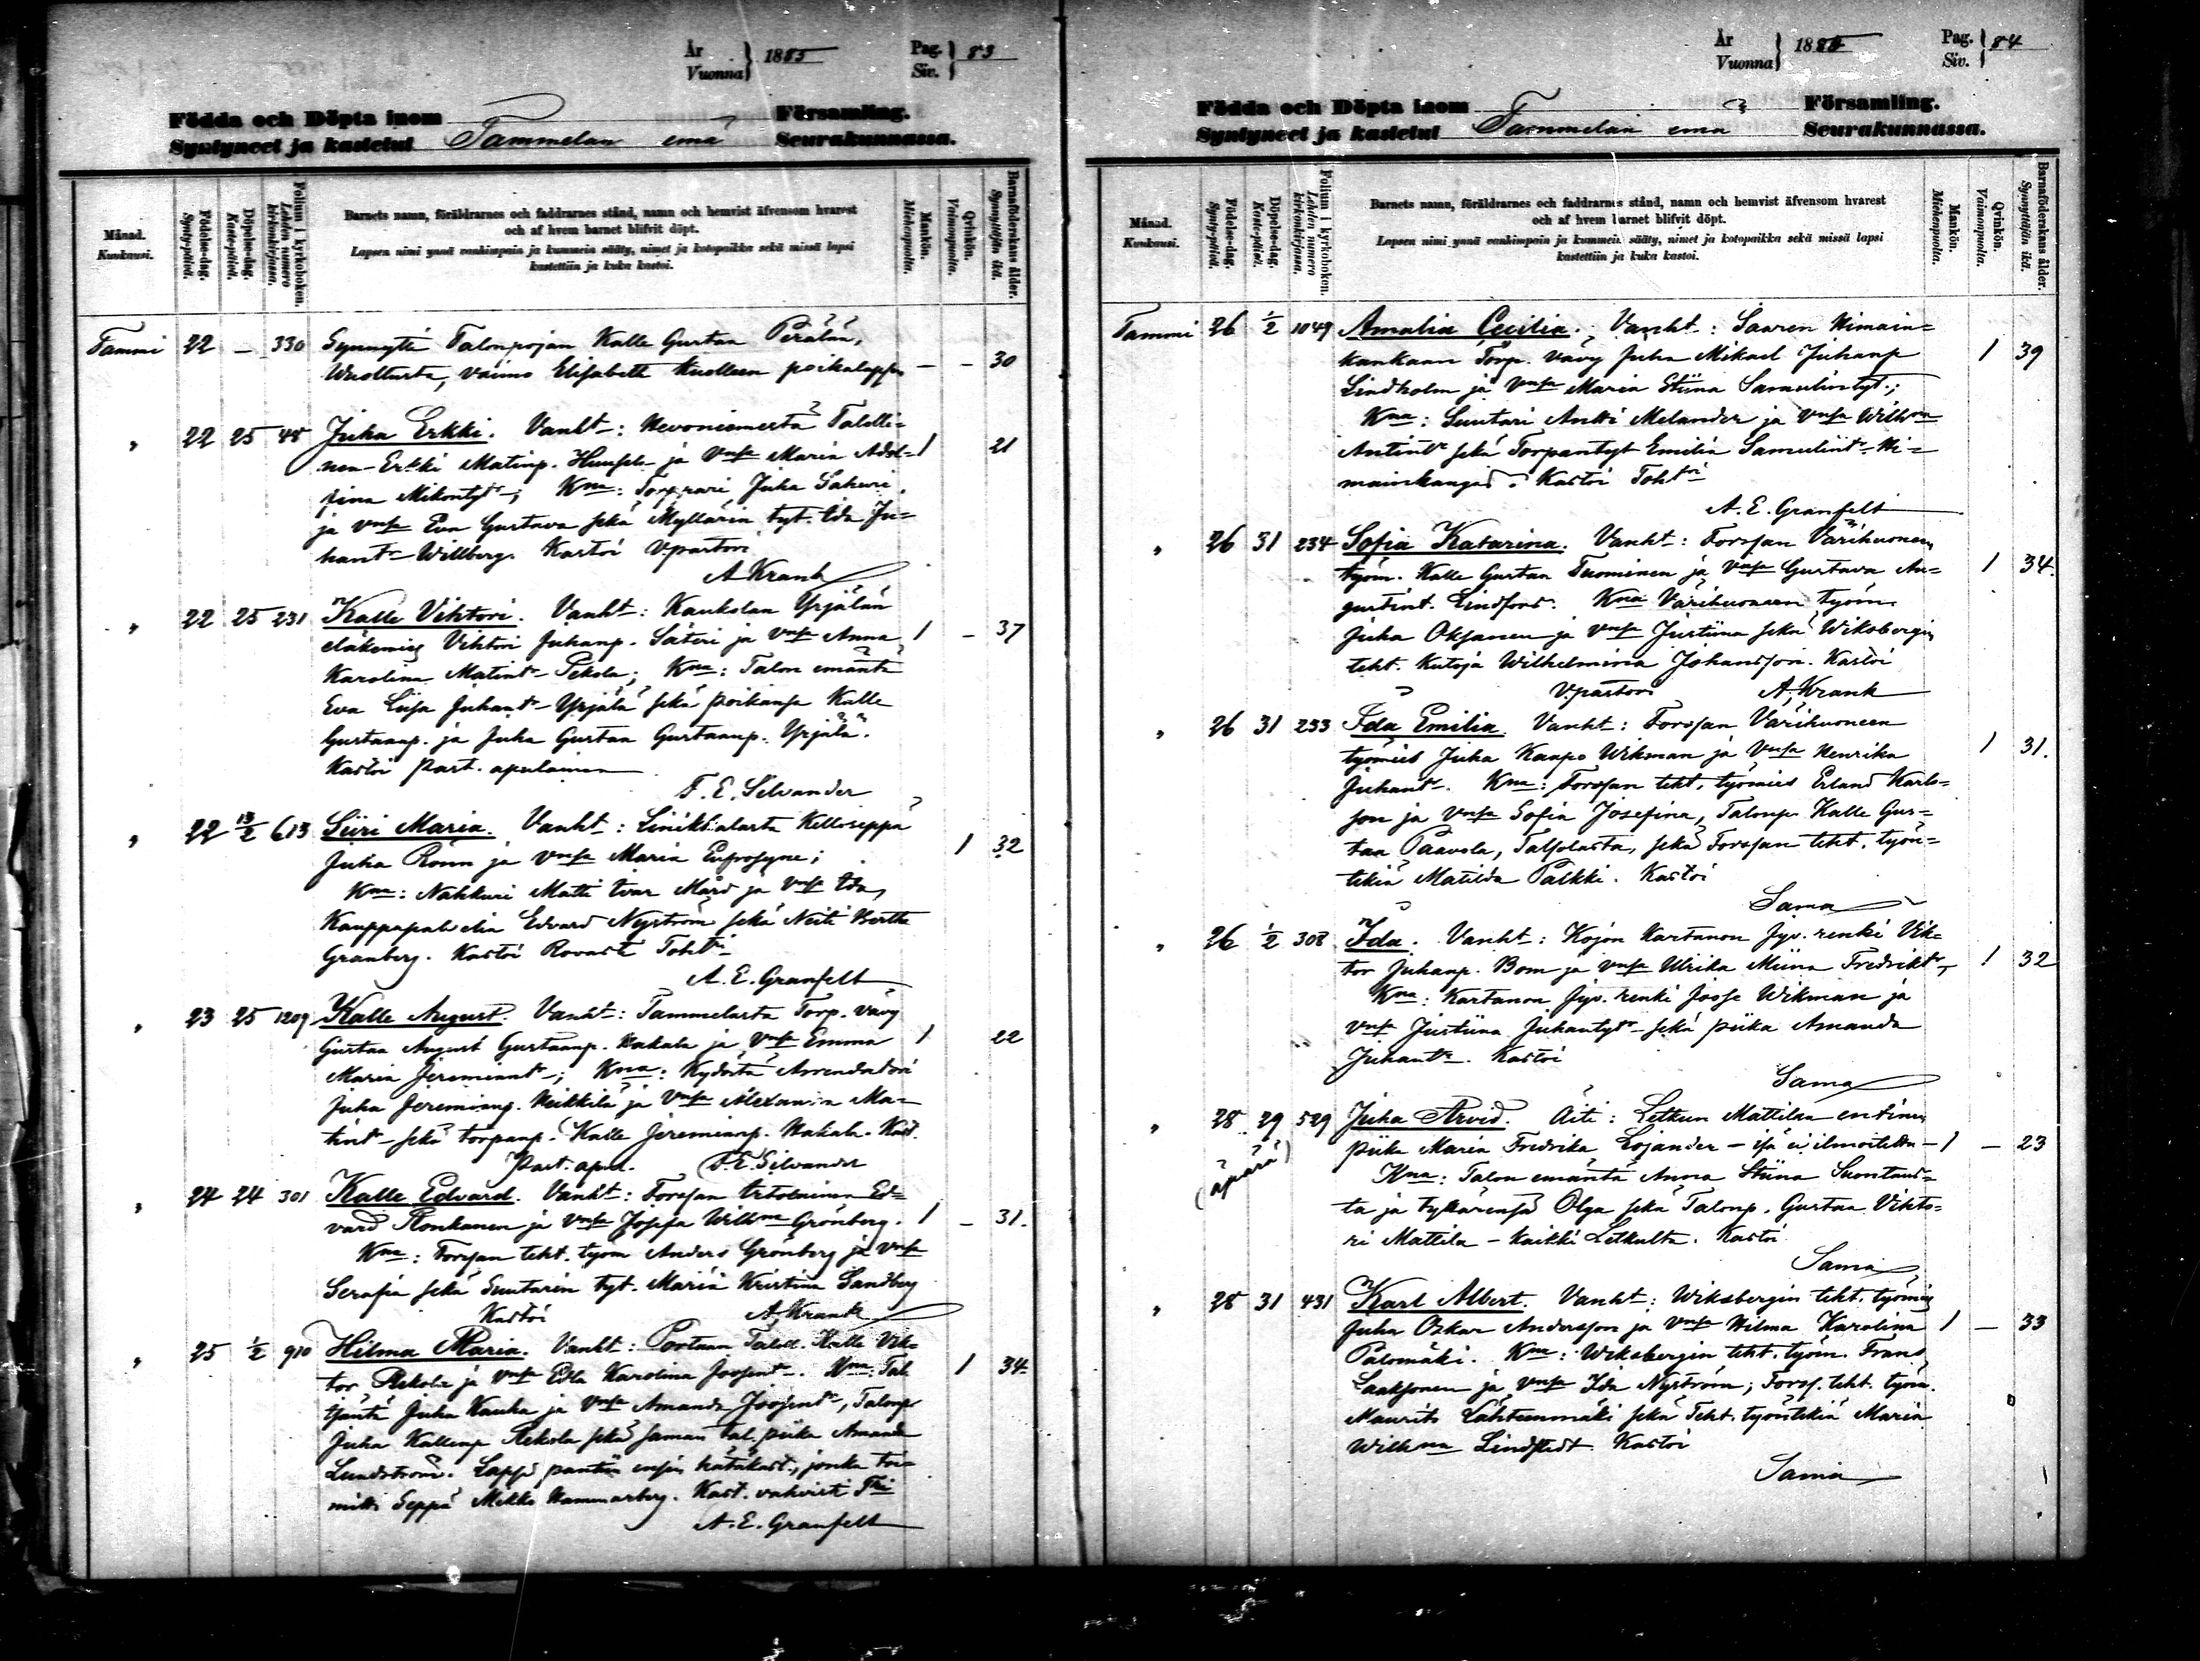 År
Vuonna } 1885 Pag.
Siv. } 83
Födda och Döpta inom Församling.
Syntyneet ja kastetut Tammelan emä Seurakunnassa.
Månad.
Kuukausi.
Födelse-dag.
Synty-päivä.
Döpelse-dag.
Kaste-päivä.
Folium i kyrkoboken.
Lehden numero kirkonkirjassa.
Barnets namn, föräldrarnes och faddrarnes stånd, namn och hemvist äfvensom hvarest
och af hvem barnet blifvit döpt.
Lapsen nimi ynnä vanhimpain ja kummein sääty, nimet ja kotopaikka sekä missä lapsi
kastettiin ja kuka kastoi.
Mankön.
Miehenpuolia.
Qvinkön.
Vaimonpuolia.
Barnaföderskans ålder.
Synnyttäjän ikä.
Tammi 22 — 330 Synnytti Talonpojan Kalle Gustaa Perälän,
vaimo Elisabeth kuolleen poikalapsen — — 30
" 22 25 48 Juha Erkki. Vanht:
Erkki Matinp. ja Vnsa Maria Adol- 1 21
fina Mikontytr; Kma: Torppari Juha Sakari
ja Vnsa Eva Gustava sekä Myllärin tyt. Ida Ju-
hantr Willberg. Kastoi Vpastori
A Krank
" 22 25 231 Kalle Vihtori. Vanht: Kaukolan Yrjälän
Vihtori Juhanp. Säteri ja Vnsa Anna 1 — 37
Karolina Matintr Pekola; Kma: Talon emäntä
Eva Liisa Juhantr Yrjälä sekä poikansa Kalle
Gustaanp. ja Juha Gustaa Gustaanp. Yrjälä.
Kastoi past. apulainen
F. E. Silvander
" 22 13/2 613 Siiri Maria. Vanht: Kelloseppä
Juha Rönn ja Vnsa Maria Eufrosyne; 1 32
Kma: Nahkuri Matti Ivar Mård ja Vnsa Ida,
Kauppapalvelia Edvard Nyström sekä Neiti Bertta
Granberg. Kastoi Rovasti Toht
A. E. Granfelt
" 23 25 1209 Kalle August. Vanht: Tammelasta Torp. vävy
Gustaa August Gustaanp. Hakala ja Vnsa Emma 1 22
Maria Jeremiantr; Kma: Kydöstä Arrendatori
Juha Jeremianp. Heikkilä ja Vnsa Alexandra Ma-
tintr sekä torpanp. Kalle Jeremianp. Hakala. Kast.
Past. apul. F. E. Silvander
" 24 24 301 Kalle Edvard. Vanht: Forssan Ed-
vard Ronkanen ja Vnsa Josefa Wilhna Grönberg. 1 — 31.
Kma: Forssan teht. työm Anders Grönberg ja Vnsa
Serafia sekä Suutarin tyt. Maria Kristina Sandberg
Kastoi A. Krank
" 25 1/2 910 Hilma Maria. Vanht: Portaan Kalle Vik-
tor Rekola ja Vnsa Edla Karolina Joosentr. Kma: Tal. 1 34.
Juha Kauha ja Vnsa Amanda Joosentr, Talonp.
Juha Kallenp Rekola sekä saman tal. piika Amanda
Lundström. Lapsi pantiin ensin hätäkast., jonka toi-
mitti Seppä Mikko Hammarberg. Kast. vahvisti
A. E. Granfelt
År
Vuonna } 1885 Pag.
Siv. } 84
Födda och Döpta inom Församling.
Syntyneet ja kastetut Tammelan emä Seurakunnassa.
Månad.
Kuukausi.
Födelse-dag.
Synty-päivä.
Döpelse-dag.
Kaste-päivä.
Folium i kyrkoboken.
Lehden numero kirkonkirjassa.
Barnets namn, föräldrarnes och faddrarnes stånd, namn och hemvist äfvensom hvarest
och af hvem barnet blifvit döpt.
Lapsen nimi ynnä vanhimpain ja kummein sääty, nimet ja kotopaikka sekä missä lapsi
kastettiin ja kuka kastoi.
Mankön.
Miehenpuolia.
Qvinkön.
Vaimonpuolia.
Barnaföderskans ålder.
Synnyttäjän ikä.
Tammi 26 1/2 1049 Amalia Cecilia. Vanht: Saaren
Torp. vävy Juha Mikael Juhanp 1 39
Lindholm ja Vnsa Maria Stiina Samulintyt.;
Kma: Suutari Antti Melander ja Vnsa Wilhna
Antintr sekä Torpantyt Emilia Samulintr
Kastoi Toht
A. E. Granfelt
" 26 31 234 Sofia Katarina. Vanht: Forssan Värihuoneen
työm. Kalle Gustaa Tuominen ja Vnsa Gustava Au- 1 34.
gustint. Lindfors. Kma Värihuoneen työm.
Juha Oksanen ja Vnsa Justiina sekä Wiksbergin
teht. kutoja Wilhelmina Johansson. Kastoi
Vpastori A. Krank
" 26 31 233 Ida Emilia. Vanht: Forssan Värihuoneen
työmies Juha Kaapo Wikman ja Vnsa Henrika 1 31.
Juhantr. Kma: Forssan teht. työmies Erland Karls-
son ja Vnsa Sofia Josefina, Talonp. Kalle Gus-
taa Paavola, Talsolasta, sekä Forssan teht. työn-
tekiä Matilda Palkki. Kastoi
Sama
" 26 1/2 308 Ida. Vanht: Kojon Kartanon renki Vik-
tor Juhanp. Bom ja Vnsa Ulrika Miina Fredrikt, 1 32
Kma: Kartanon renki Joose Wikman ja
Vnsa Justiina Juhantytr sekä piika Amanda
Juhantr. Kastoi
Sama
" 28 29 529 Juha Arvid. Äiti: Letkun Mattilan entinen
(äpärä) piika Maria Fredrika Lojander — isä ei ilmoitettu — 1 — 23
Kma: Talon emäntä Anna Stiina
ta ja tyttärensä Olga sekä Talonp. Gustaa Vihto-
ri Mattila — kaikki Letkulta. Kastoi
Sama
" 28 31 431 Karl Albert. Vanht: Wiksbergin teht. työmies
Juha Oskar Andersson ja Vnsa Hilma Karolina 1 — 33
Palomäki. Kma: Wiksbergin teht. työm. Frans
Laaksonen ja Vnsa Ida Nyström; Forss. teht. työm.
Maurits Lähteenmäki sekä Teht. työntekiä Maria
Wilhna Lindstedt. Kastoi
Sama